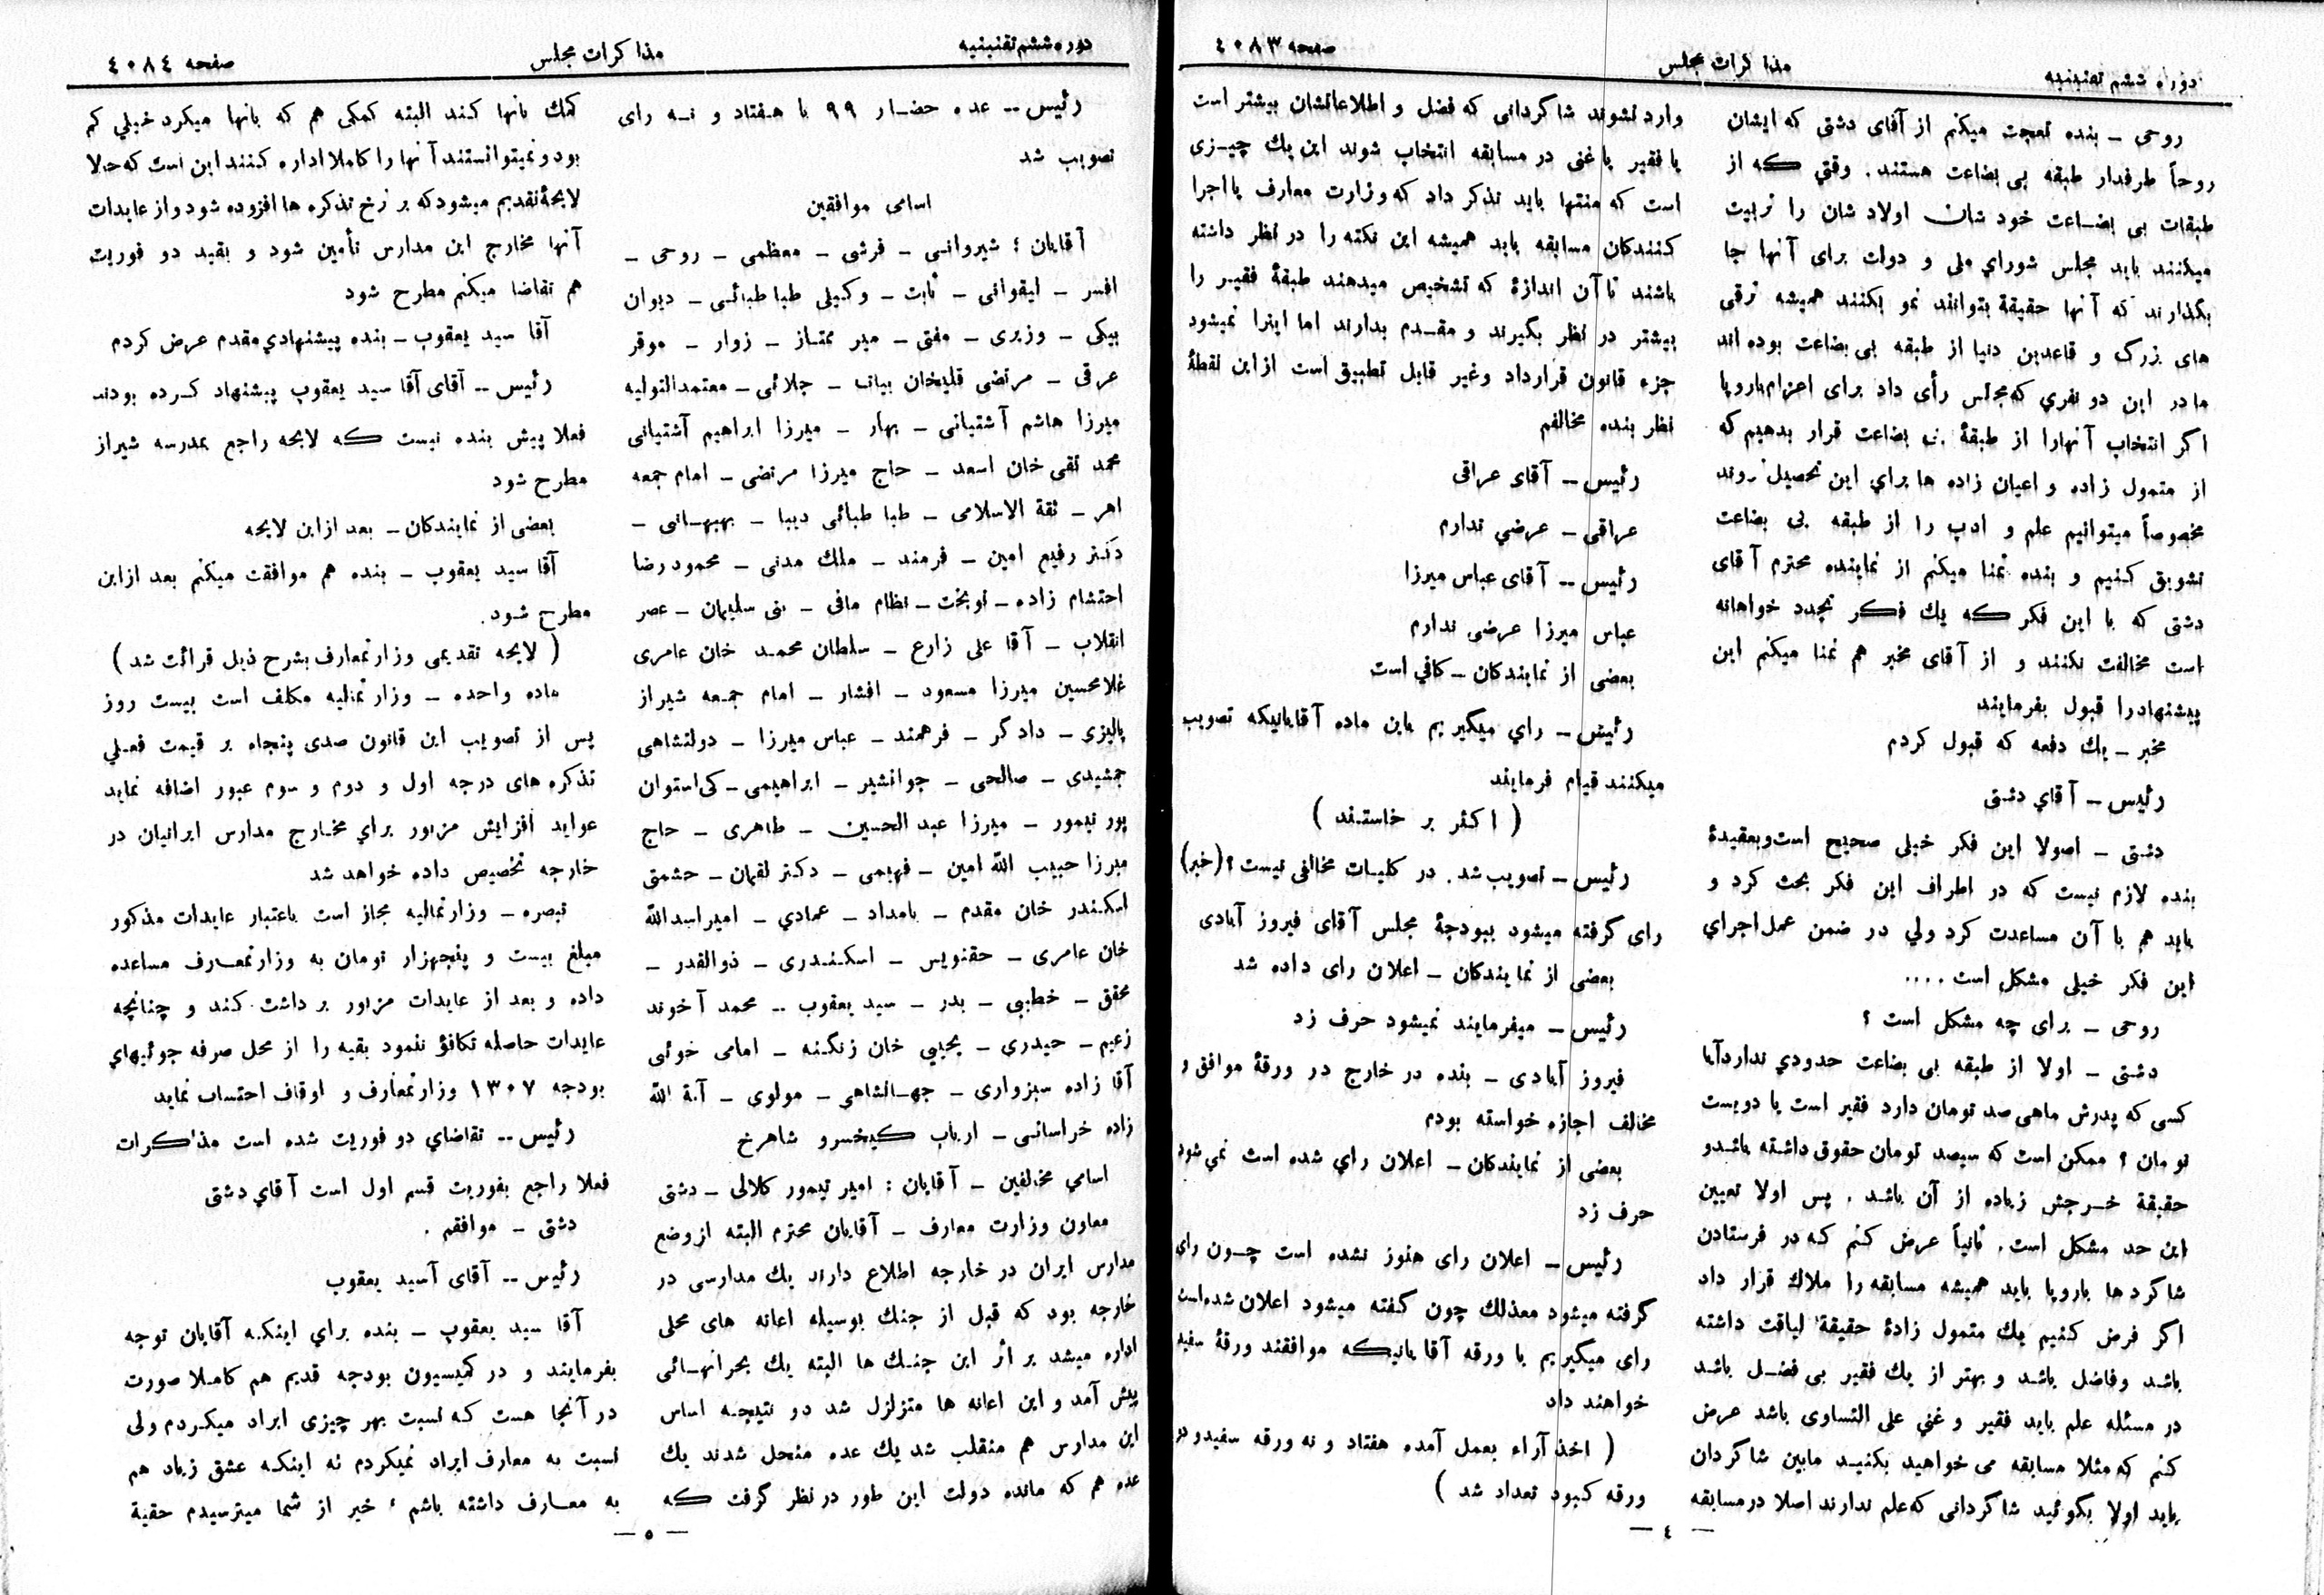 دوره ششم تقنینیه
مذاکرات مجلس
صفحه ٤٠٨٣
روحی ــ بنده تعجب میکنم از آقای دشتی که ایشان
روحاً طرفدار طبقه بی بضاعت هستند. وقتي که از
طبقات بی بضاعت خود شان اولاد شان را تربیت
میکنند باید مجلس شوراي ملی و دولت برای آنها جا
بگذارند که آنها حقیقة بتوانند نمو بکنند همیشه ترقی
های بزرگ و قاعدین دنیا از طبقه بی بضاعت بوده اند
ما در این دو نفري که مجلس رأی داد برای اعزام باروپا
اگر انتخاب آنهارا از طبقهٔ بی بضاعت قرار بدهیم که
از متمول زاده و اعیان زاده ها براي این تحصیل نروند
مخصوصاً میتوانیم علم و ادب را از طبقه بی بضاعت
تشویق کنیم و بنده تمنا میکنم از نماینده محترم آقای
دشتی که با این فکر که یك فکر تجدد خواهانه
است مخالفت نکنند و از آقای مخبر هم تمنا میکنم این
پیشنهادرا قبول بفرمایند
مخبر ــ یك دفعه که قبول کردم
رئیس ــ آقاي دشتی
دشتی ــ اصولا این فکر خیلی صحیح است وبعقیدهٔ
بنده لازم نیست که در اطراف این فکر بحث کرد و
باید هم با آن مساعدت کرد ولي در ضمن عمل اجراي
این فکر خیلی مشکل است ....
روحی ــ برای چه مشکل است ؟
دشتی ــ اولا از طبقه بی بضاعت حدودي ندارد آیا
کسی که پدرش ماهی صد تومان دارد فقیر است یا دویست
تومان ؟ ممکن است که سیصد تومان حقوق داشته باشدو
حقیقة خرجش زیاده از آن باشد . پس اولا تعیین
این حد مشکل است. ثانیاً عرض کنم که در فرستادن
شاگرد ها باروپا باید همیشه مسابقه را ملاك قرار داد
اگر فرض کنیم یك متمول زادهٔ حقیقة لیاقت داشته
باشد وفاضل باشد و بهتر از یك فقیر بی فضل باشد
در مسئله علم باید فقیر و غنی علی التساوی باشد عرض
کنم که مثلا مسابقه می خواهید بکنید مابین شاگردان
باید اولا بگوئید شاگردانی که علم ندارند اصلا در مسابقه
وارد نشوند شاگردانی که فضل و اطلاعاتشان بیشتر است
یا فقیر یا غنی در مسابقه انتخاب شوند این یك چیزی
است که منتها باید تذکر داد که وزارت معارف یا اجرا
کنندکان مسابقه باید همیشه این نکته را در نظر داشته
باشند تا آن اندازهٔ که تشخیص میدهند طبقهٔ فقیر را
بیشتر در نظر بگیرند و مقدم بدارند اما اینرا نمیشود
جزء قانون قرارداد وغیر قابل تطبیق است ازاین نقطهٔ
نظر بنده مخالفم
رئیس ــ آقای عراقی
عراقی ــ عرضي ندارم
رئیس ــ آقای عباس میرزا
عباس میرزا عرضی ندارم
بعضی از نمایندکان ــ کافي است
رئیس ــ راي میگیریم باین ماده آقایانیکه تصویب
میکنند قیام فرمایند
( اکثر بر خاستند )
رئیس ــ تصویب شد . در کلیات مخالفی نیست ؟ (خیر)
رای گرفته میشود ببودجهٔ مجلس آقای فیروز آبادی
بعضی از نمایندکان ــ اعلان رای داده شد
رئیس ــ میفرمایند نمیشود حرف زد
فیروز آبادی ــ بنده در خارج در ورقهٔ موافق و
مخالف اجازه خواسته بودم
بعضی از نمایندکان ــ اعلان راي شده است نمي شود
حرف زد
رئیس ــ اعلان رای هنوز نشده است چون رای
گرفته میشود معذلك چون گفته میشود اعلان شده است
رای میگیریم با ورقه آقایانیکه موافقند ورقهٔ سفید
خواهند داد
( اخذ آراء بعمل آمده هفتاد و نه ورقه سفید و دو
ورقه کبود تعداد شد )
ــ ٤ ــ
دوره ششم تقنینیه
مذاکرات مجلس
صفحه ٤٠٨٤
رئیس ــ عده حضار ٩٩ با هفتاد و نه رای
تصویب شد
اسامی موافقین
آقایان : شیروانی ــ فرشی ــ معظمی ــ روحی ــ
افسر ــ ایقوانی ــ ثابت ــ وکیلی طباطبائی ــ دیوان
بیکی ــ وزیری ــ مفتی ــ میر ممتاز ــ زوار ــ موقر
عرقی ــ مرتضی قلیخان بیات ــ جلائی ــ معتمدالتولیه
میرزا هاشم آشتیانی ــ بهار ــ میرزا ابراهیم آشتیانی
محمد تقی خان اسعد ــ حاج میرزا مرتضی ــ امام جمعه
اهر ــ ثقة الاسلامی ــ طبا طبائی دیبا ــ بهبهانی ــ
دکتر رفیع امین ــ فرمند ــ ملك مدنی ــ محمود رضا
احتشام زاده ــ نوبخت ــ نظام مافی ــ بنی سلیمان ــ عصر
انقلاب ــ آقا علی زارع ــ سلطان محمد خان عامری
غلامحسین میرزا مسعود ــ افشار ــ امام جمعه شیراز
پالیزی ــ دادگر ــ فرهمند ــ عباس میرزا ــ دولتشاهی
جمشیدی ــ صالحی ــ جوانشیر ــ ابراهیمی ــ کی استوان
پور تیمور ــ میرزا عبد الحسین ــ طاهری ــ حاج
میرزا حبیب الله امین ــ فهیمی ــ دکتر لقمان ــ حشمتی
اسکندر خان مقدم ــ بامداد ــ عمادي ــ امیر اسدالله
خان عامری ــ حقنویس ــ اسکندری ــ ذوالقدر ــ
محقق ــ خطیبی ــ بدر ــ سید یعقوب ــ محمد آخوند
زعیم ــ حیدري ــ یحیی خان زنگنه ــ امامی خوئی
آقا زاده سبزواری ــ جهانشاهی ــ مولوی ــ آیة الله
زاده خراسانی ــ ارباب کیخسرو شاهرخ
اسامي مخالفین ــ آقایان : امیر تیمور کلالی ــ دشتی
معاون وزارت معارف ــ آقایان محترم البته از وضع
مدارس ایران در خارجه اطلاع دارند یك مدارسی در
خارجه بود که قبل از جنك بوسیله اعانه های محلی
اداره میشد بر اثر این جنك ها البته یك بحرانهائی
پیش آمد و این اعانه ها متزلزل شد در نتیجه اساس
این مدارس هم منقلب شد یك عده منحل شدند یك
عده هم که مانده دولت این طور در نظر گرفت که
كمك بانها کند البته کمکی هم که بانها میکرد خیلي کم
بود و نمیتوانستند آنها را کاملا اداره کنند این است که حالا
لایحهٔ تقدیم میشود که بر نرخ تذکره ها افزوده شود و از عایدات
آنها مخارج این مدارس تأمین شود و بقید دو فوریت
هم تقاضا میکنم مطرح شود
آقا سید یعقوب ــ بنده پیشنهادي مقدم عرض کردم
رئیس ــ آقای آقا سید یعقوب پیشنهاد کرده بودند
فعلا پیش بنده نیست که لایحه راجع بمدرسه شیراز
مطرح شود
بعضی از نمایندکان ــ بعد از این لایحه
آقا سید یعقوب ــ بنده هم موافقت میکنم بعد ازاین
مطرح شود.
( لایحه تقدیمی وزارتمعارف بشرح ذیل قرائت شد )
ماده واحده ــ وزارتمالیه مکلف است بیست روز
پس از تصویب این قانون صدی پنجاه بر قیمت فعلي
تذکره های درجه اول و دوم و سوم عبور اضافه نماید
عواید افزایش مزبور براي مخارج مدارس ایرانیان در
خارجه تخصیص داده خواهد شد
تبصره ــ وزارتمالیه مجاز است باعتبار عایدات مذکور
مبلغ بیست و پنجهزار تومان به وزارتمعارف مساعده
داده و بعد از عایدات مزبور بر داشت کند و چنانچه
عایدات حاصله تکافؤ ننمود بقیه را از محل صرفه جوئیهاي
بودجه ١٣٠٧ وزارتمعارف و اوقاف احتساب نماید
رئیس ــ تقاضاي دو فوریت شده است مذاکرات
فعلا راجع بفوریت قسم اول است آقاي دشتی
دشتی ــ موافقم .
رئیس ــ آقای آسید یعقوب
آقا سید یعقوب ــ بنده براي اینکه آقایان توجه
بفرمایند و در کمیسیون بودجه قدیم هم کاملا صورت
در آنجا هست که نسبت بهر چیزی ایراد میکردم ولی
نسبت به معارف ایراد نمیکردم نه اینکه عشق زیاد هم
به معارف داشته باشم ، خیر از شما میترسیدم حقیقة
ــ ٥ ــ